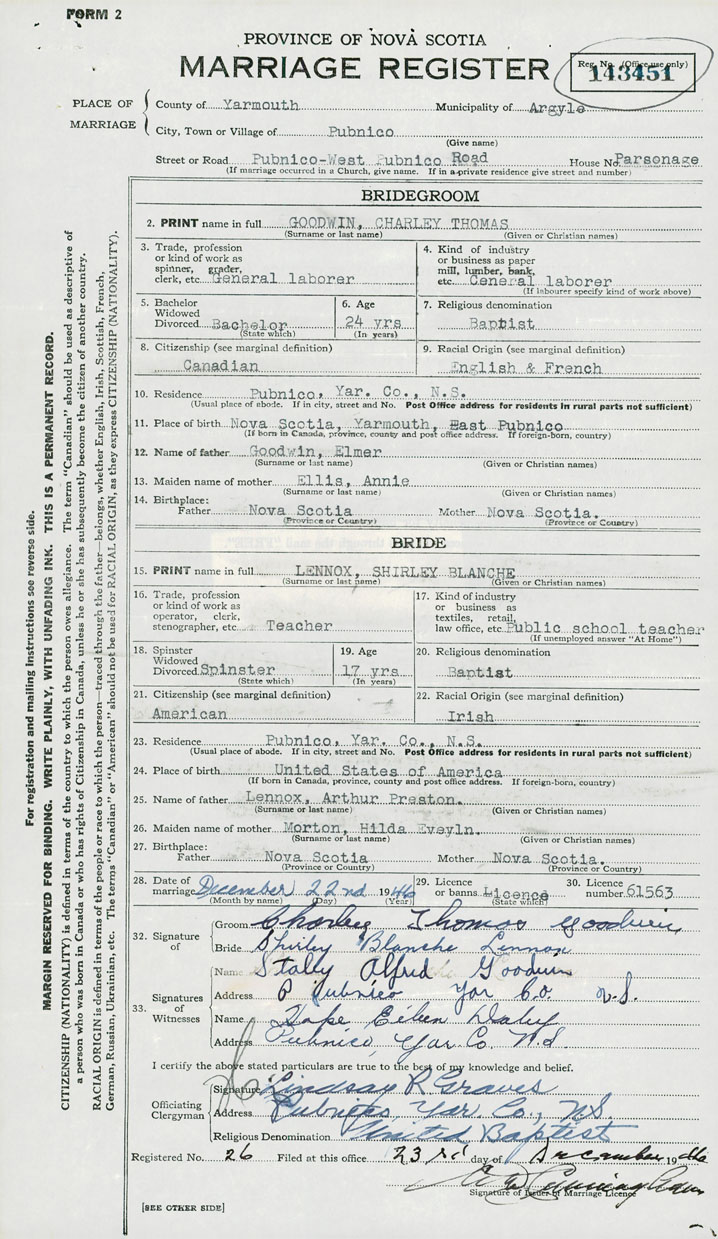 FORM 2
PROVINCE OF NOVA SCOTIA
MARRIAGE REGISTER
Reg. No. (Office use only)
143451
PLACE OF MARRIAGE
County of Yarmouth Municipality of Argyle
City, Town or Village of Pubnico
(Give name)
Street or Road Pubnico-West Pubnico Road House No. Parsonage
(If marriage occurred in a Church, give name. If in a private residence give street and number)
BRIDEGROOM
2. PRINT name in full GOODWIN, CHARLEY THOMAS
(Surname or last name) (Given or Christian names)
3. Trade, profession or kind of work as spinner, grader, clerk, etc. General laborer
4. Kind of industry or business as paper mill, lumber, bank, etc. General laborer
(If labourer specify kind of work above)
5. Bachelor Widowed Divorced Bachelor
(State which)
6. Age 24 yrs
(In years)
7. Religious denomination
Baptist
8. Citizenship (see marginal definition)
Canadian
9. Racial Origin (see marginal definition)
English & French
10. Residence Pubnico, Yar. Co., N.S.
(Usual place of abode. If in city, street and No. Post Office address for residents in rural parts not sufficient)
11. Place of birth Nova Scotia, Yarmouth, East Pubnico
(If born in Canada, province, county and post office address. If foreign-born, country)
12. Name of father Goodwin, Elmer
(Surname or last name) (Given or Christian names)
13. Maiden name of mother Ellis, Annie
(Surname or last name) (Given or Christian names)
14. Birthplace:
Father Nova Scotia Mother Nova Scotia.
(Province or Country) (Province or Country)
BRIDE
15. PRINT name in full LENNOX, SHIRLEY BLANCHE
(Surname or last name) (Given or Christian names)
16. Trade, profession or kind of work as operator, clerk, stenographer, etc. Teacher
17. Kind of industry or business as textiles, retail, law office, etc. Public school teacher
(If unemployed answer "At Home")
18. Spinster Widowed Divorced Spinster
(State which)
19. Age
17 yrs
(In years)
20. Religious denomination
Baptist
21. Citizenship (see marginal definition)
American
22. Racial Origin (see marginal definition)
Irish
23. Residence Pubnico, Yar. Co., N.S.
(Usual place of abode. If in city, street and No. Post Office address for residents in rural parts not sufficient)
24. Place of birth United States of America
(If born in Canada, province, county and post office address. If foreign-born, country)
25. Name of father Lennox, Arthur Preston.
(Surname or last name) (Given or Christian names)
26. Maiden name of mother Morton, Hilda Eveyln.
(Surname or last name) (Given or Christian names)
27. Birthplace:
Father Nova Scotia Mother Nova Scotia.
(Province or Country) (Province or Country)
28. Date of marriage December 22nd 1946
(Month by name) (Day) (Year)
29. Licence or banns Licence
(State which)
30. Licence number 61563
32. Signature of
Groom Charley Thomas Goodwin
Bride Shirley Blanche Lennox
33. Signatures of Witnesses
Name Alfred Goodwin
Address Pubnico Yar Co. N.S.
Name Eileen
Address Pubnico, Yar Co. N.S.
I certify the above stated particulars are true to the best of my knowledge and belief.
Officiating Clergyman
Signature Lindsay R. Graves
Address Pubnico, Yar. Co., N.S.
Religious Denomination United Baptist
Registered No. 26 Filed at this office 23rd day of December 1946
Cunningham
Signature of Issuer of Marriage Licence
[SEE OTHER SIDE]
For registration and mailing instructions see reverse side.
MARGIN RESERVED FOR BINDING. WRITE PLAINLY, WITH UNFADING INK. THIS IS A PERMANENT RECORD.
CITIZENSHIP (NATIONALITY) is defined in terms of the country to which the person owes allegiance. The term "Canadian" should be used as descriptive of
a person who was born in Canada or who has rights of Citizenship in Canada, unless he or she has subsequently become the citizen of another country.
RACIAL ORIGIN is defined in terms of the people or race to which the person—traced through the father—belongs, whether English, Irish, Scottish, French,
German, Russian, Ukrainian, etc. The terms "Canadian" or "American" should not be used for RACIAL ORIGIN, as they express CITIZENSHIP (NATIONALITY).